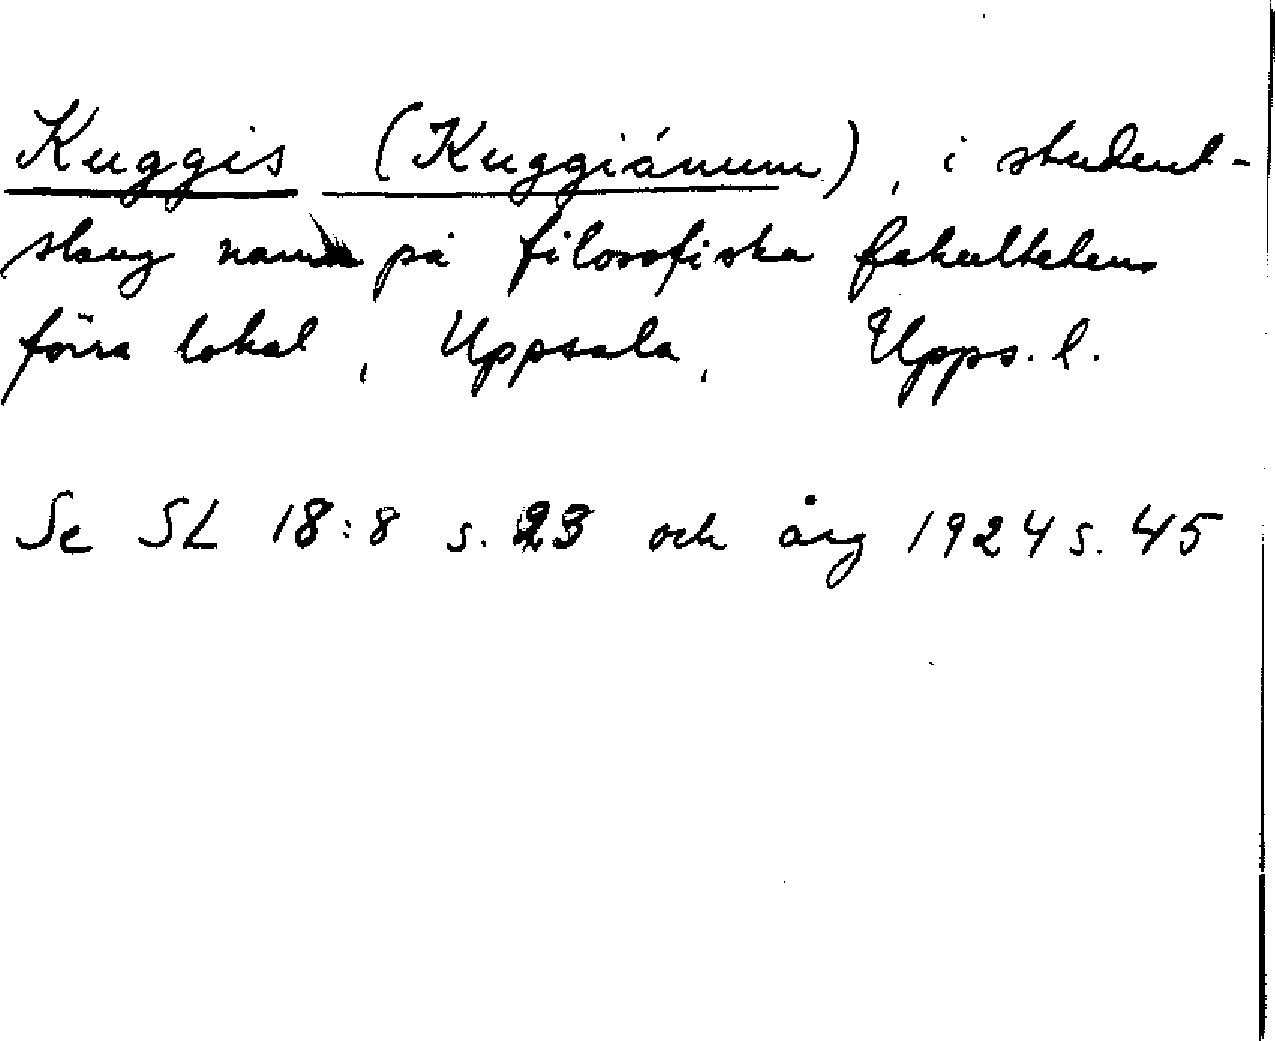 Kuggis (Kuggiánum), i student-
slang namn på filosofiska fakultetens
förra lokal, Uppsala, Upps. l.
Se SL 18:8 s. 23 och årg 1924 s. 45